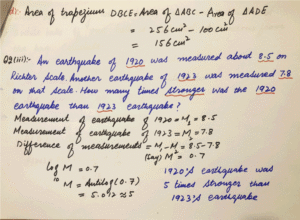 d):- Area of trapezium DBCE = Area of ΔABC - Area of ΔADE
= 256 cm² - 100 cm²
= 156 cm²
Q9(iii):- An earthquake of 1920 was measured about 8.5 on
Richter scale. Another earthquake of 1923 was measured 7.8
on that scale. How many times stronger was the 1920
earthquake than 1923 earthquake?
Measurement of earthquake of 1920 = M₁ = 8.5
Measurement of earthquake of 1923 = M₂ = 7.8
Difference of measurements = M₁ - M₂ = 8.5 - 7.8
(say) M = 0.7
log M = 0.7
10
M = Antilog (0.7)
= 5.012 ≈ 5
1920's earthquake was
5 times stronger than
1923's earthquake